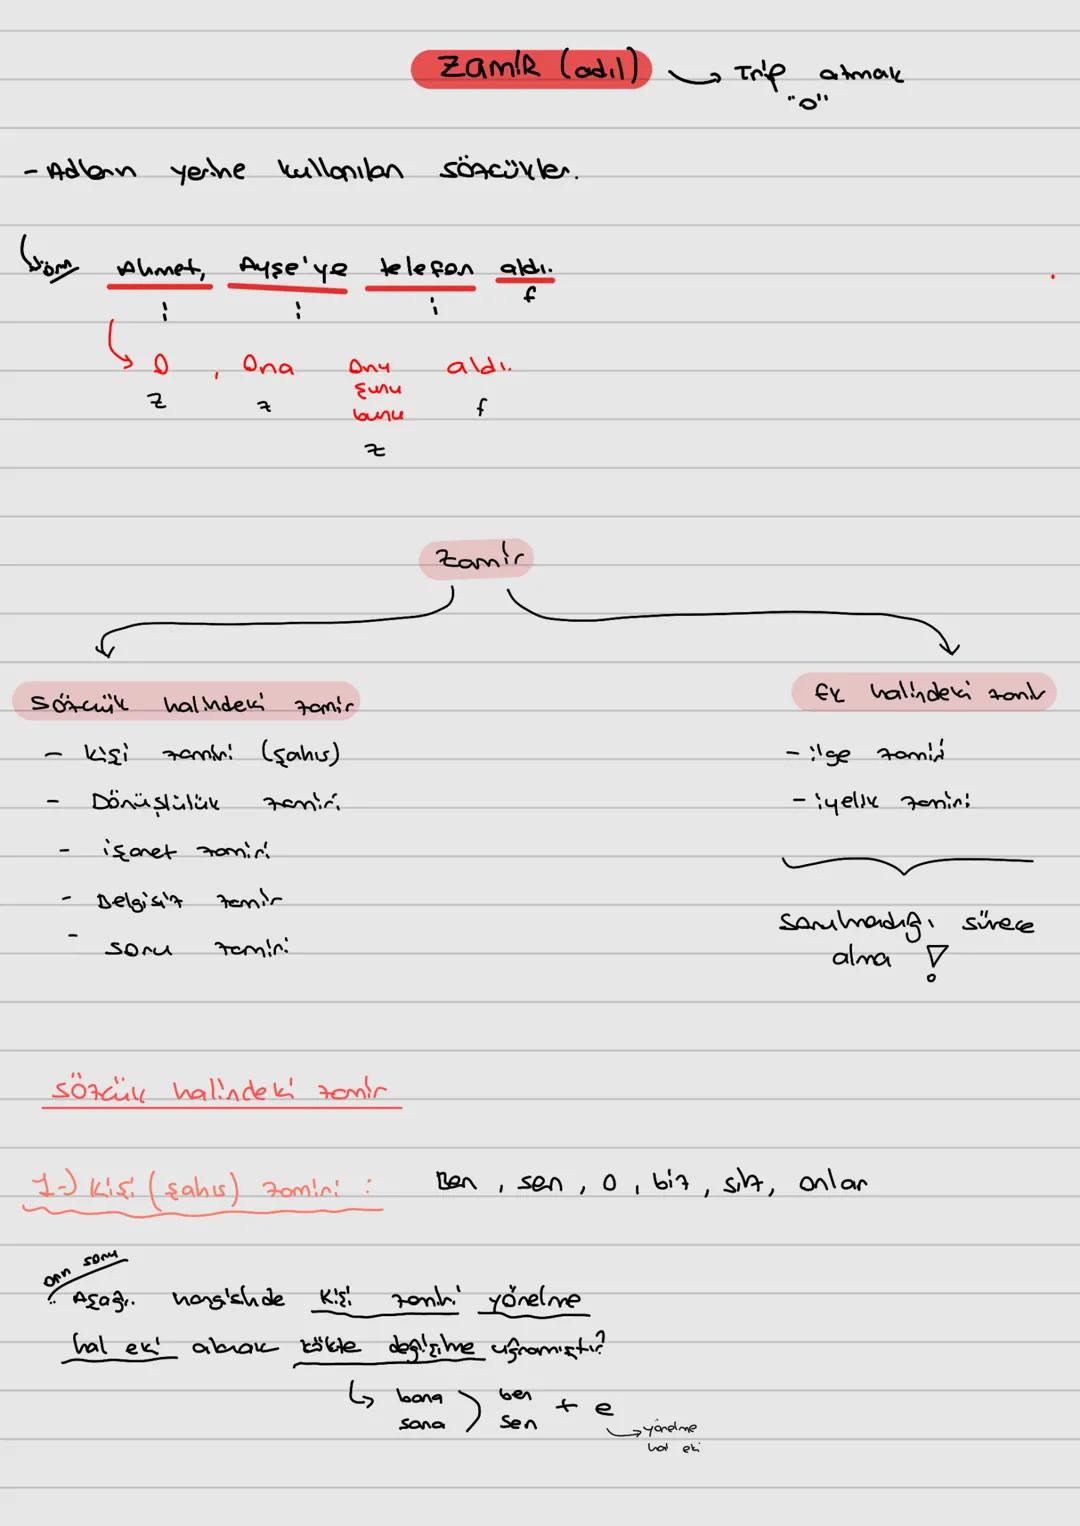 Zamir (adıl) → Trip atmak
"O"
- Adların yerine kullanılan sözcükler.
örn Ahmet, Ayşe'ye telefon aldı.
i i i f
O, Ona Onu aldı.
şunu
z z bunu f
z
Zamir
Sözcük halindeki zamir
- Kişi zamiri (şahıs)
- Dönüşlülük zamiri
- işaret zamiri
- Belgisiz zamir
- soru zamiri
Ek halindeki zamir
- ilge zamiri
- iyelik zamiri
Sorulmadığı sürece
alma !
Sözcük halindeki zamir
1-) Kişi (şahıs) zamiri : Ben, sen, O, biz, siz, onlar
örn soru
: Aşağı. hangisinde Kişi zamiri yönelme
hal eki alarak kökte değişime uğramıştır?
↳ bana ) ben + e
sana sen
→ yönelme
hal eki